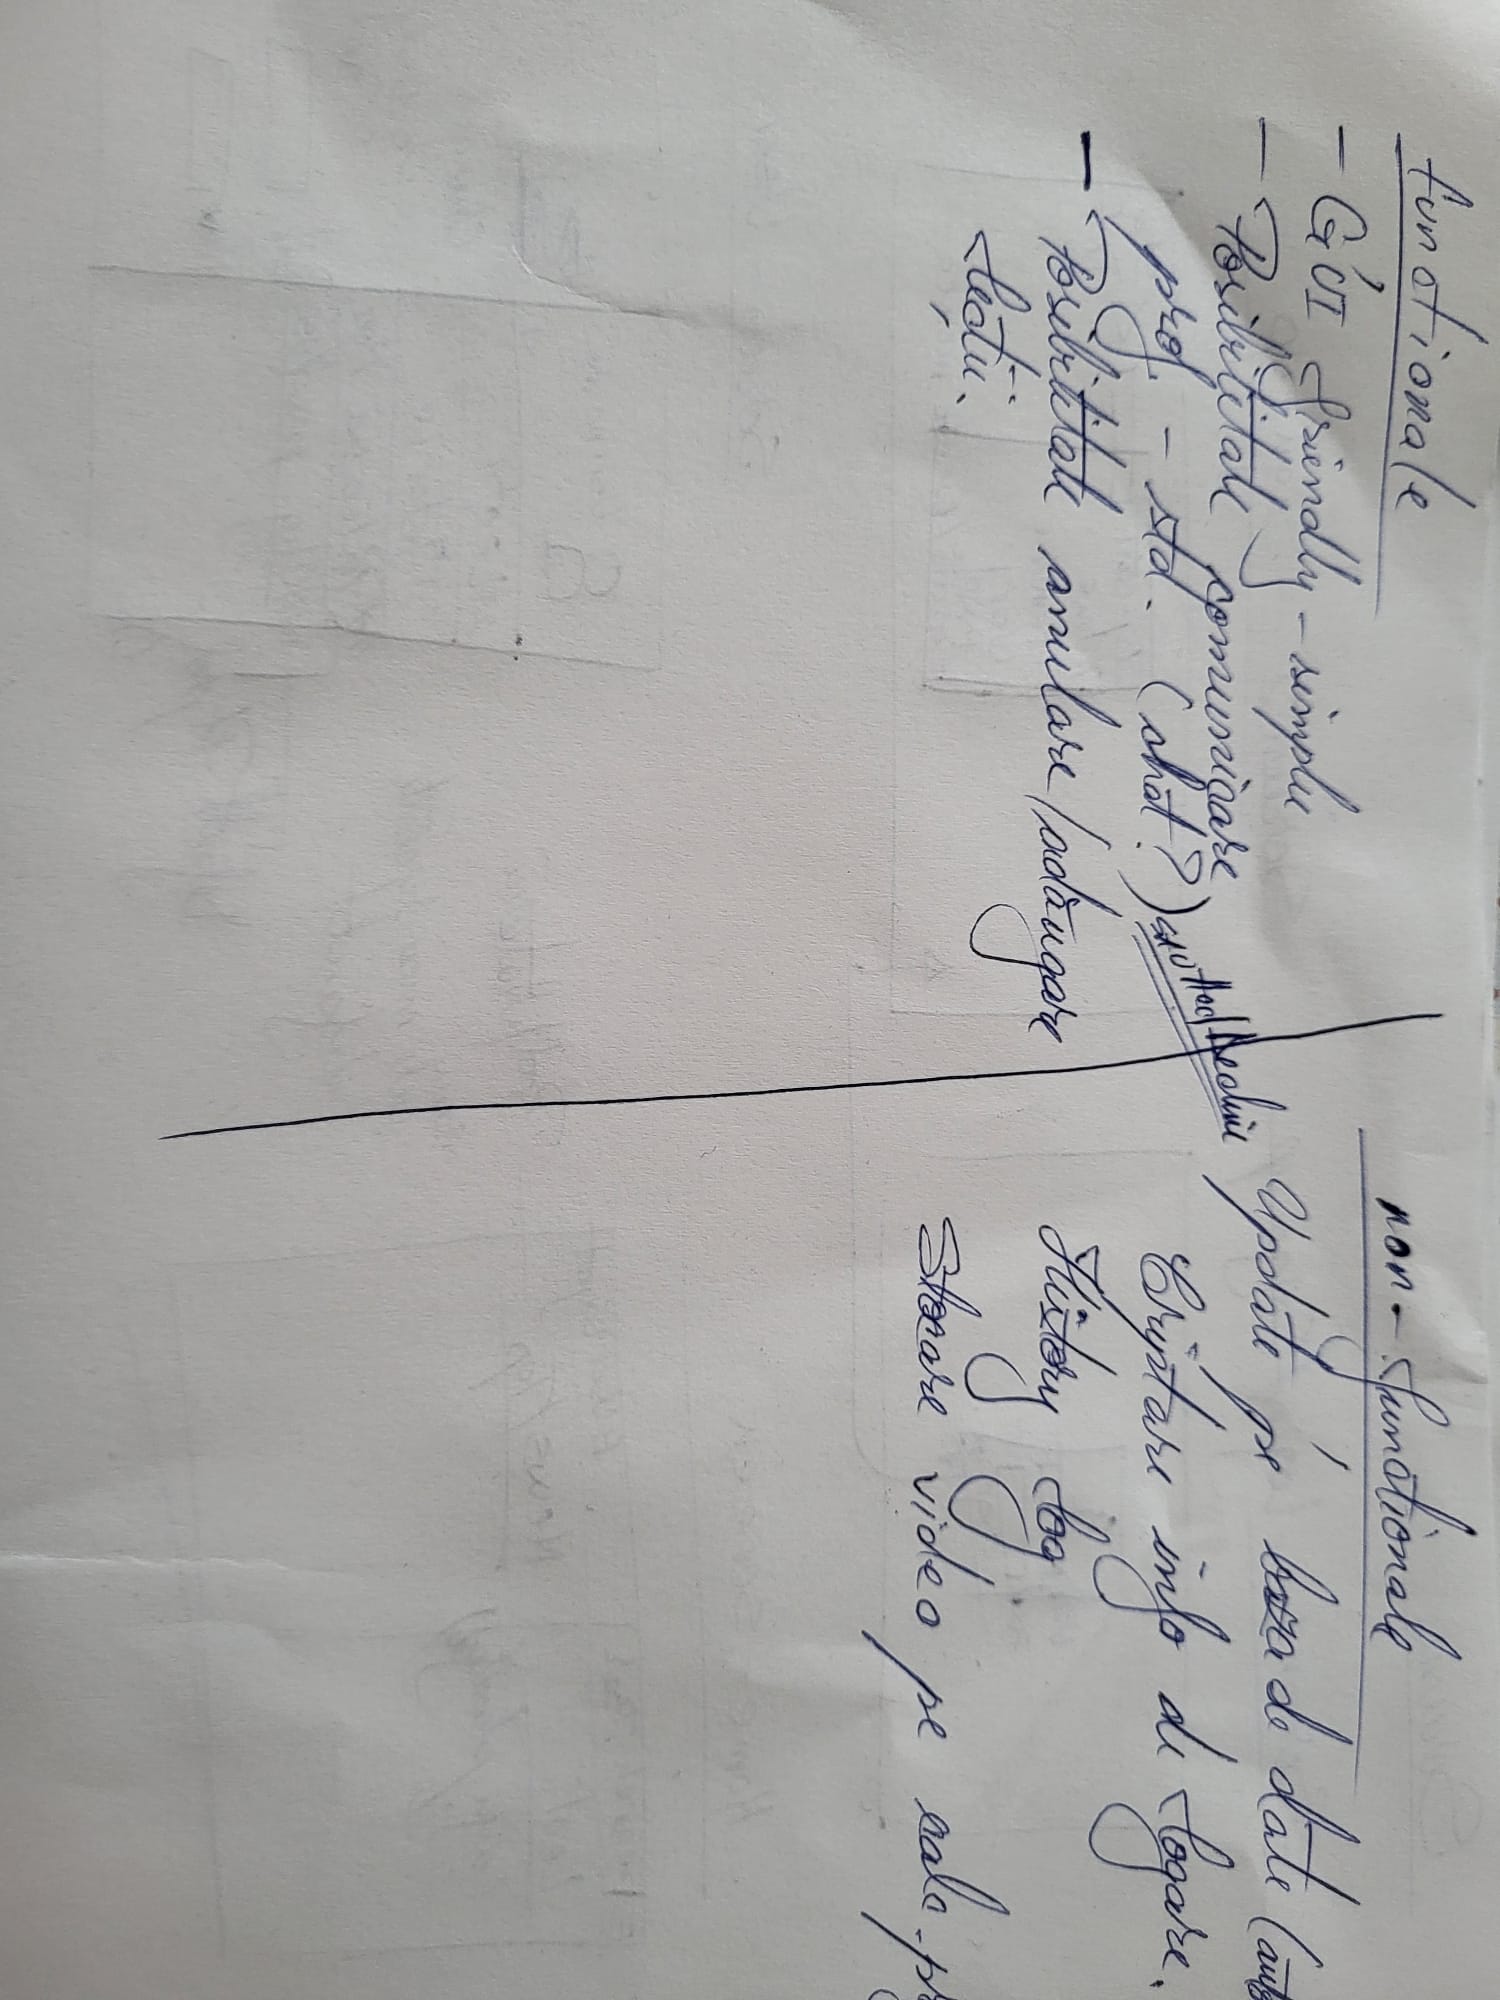 functionale
- GUI friendly - simplu
- Posibilitate comunicare
prof. - std. (chat?)
- Posibilitate anulare/adăugare
lecții.
non-functionale
Update pe baza de date (auto
Criptare info de logare.
History log
Stocare video pe calc. pr